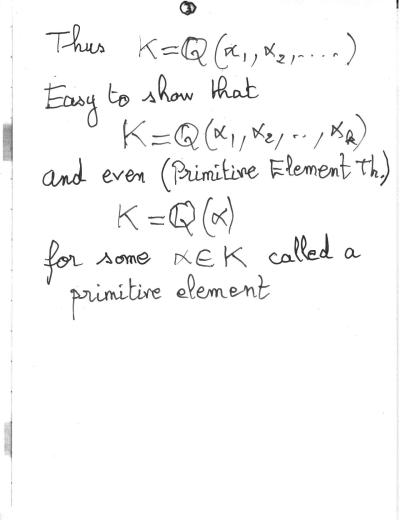 ③
Thus K=ℚ(α₁,α₂,....)
Easy to show that
K=ℚ(α₁,α₂,..,αₖ)
and even (Primitive Element Th.)
K=ℚ(α)
for some α∈K called a
primitive element